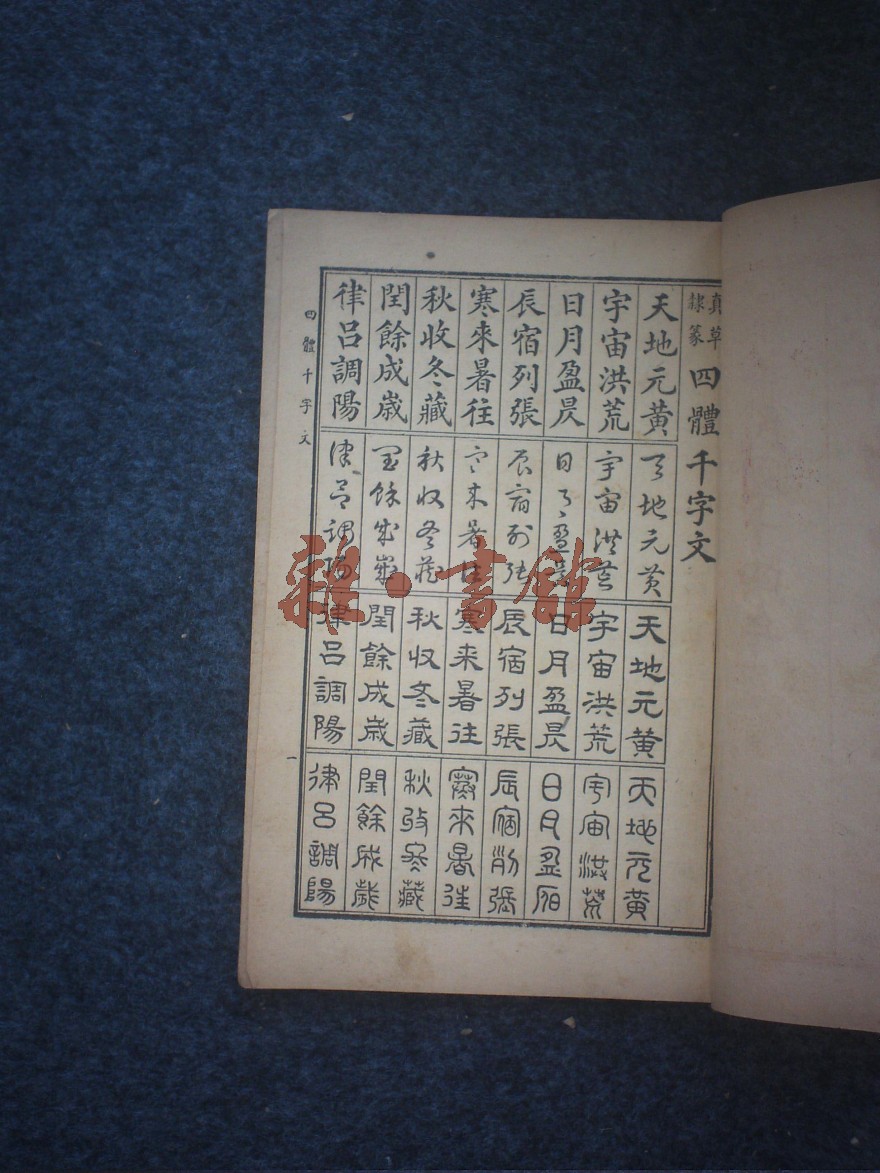 真草隸篆四體千字文
天地元黃
宇宙洪荒
日月盈昃
辰宿列張
寒來暑往
秋收冬藏
閏餘成歲
律呂調陽
天地元黃
宇宙洪荒
日月盈昃
辰宿列張
寒來暑往
秋收冬藏
閏餘成歲
律呂調陽
天地元黃
宇宙洪荒
日月盈昃
辰宿列張
寒来暑往
秋收冬藏
閏餘成歲
律呂調陽
天地元黃
宇宙洪荒
日月盈昃
辰宿列張
寒來暑往
秋收冬藏
閏餘成歲
律呂調陽
四體千字文
一
雜·書館